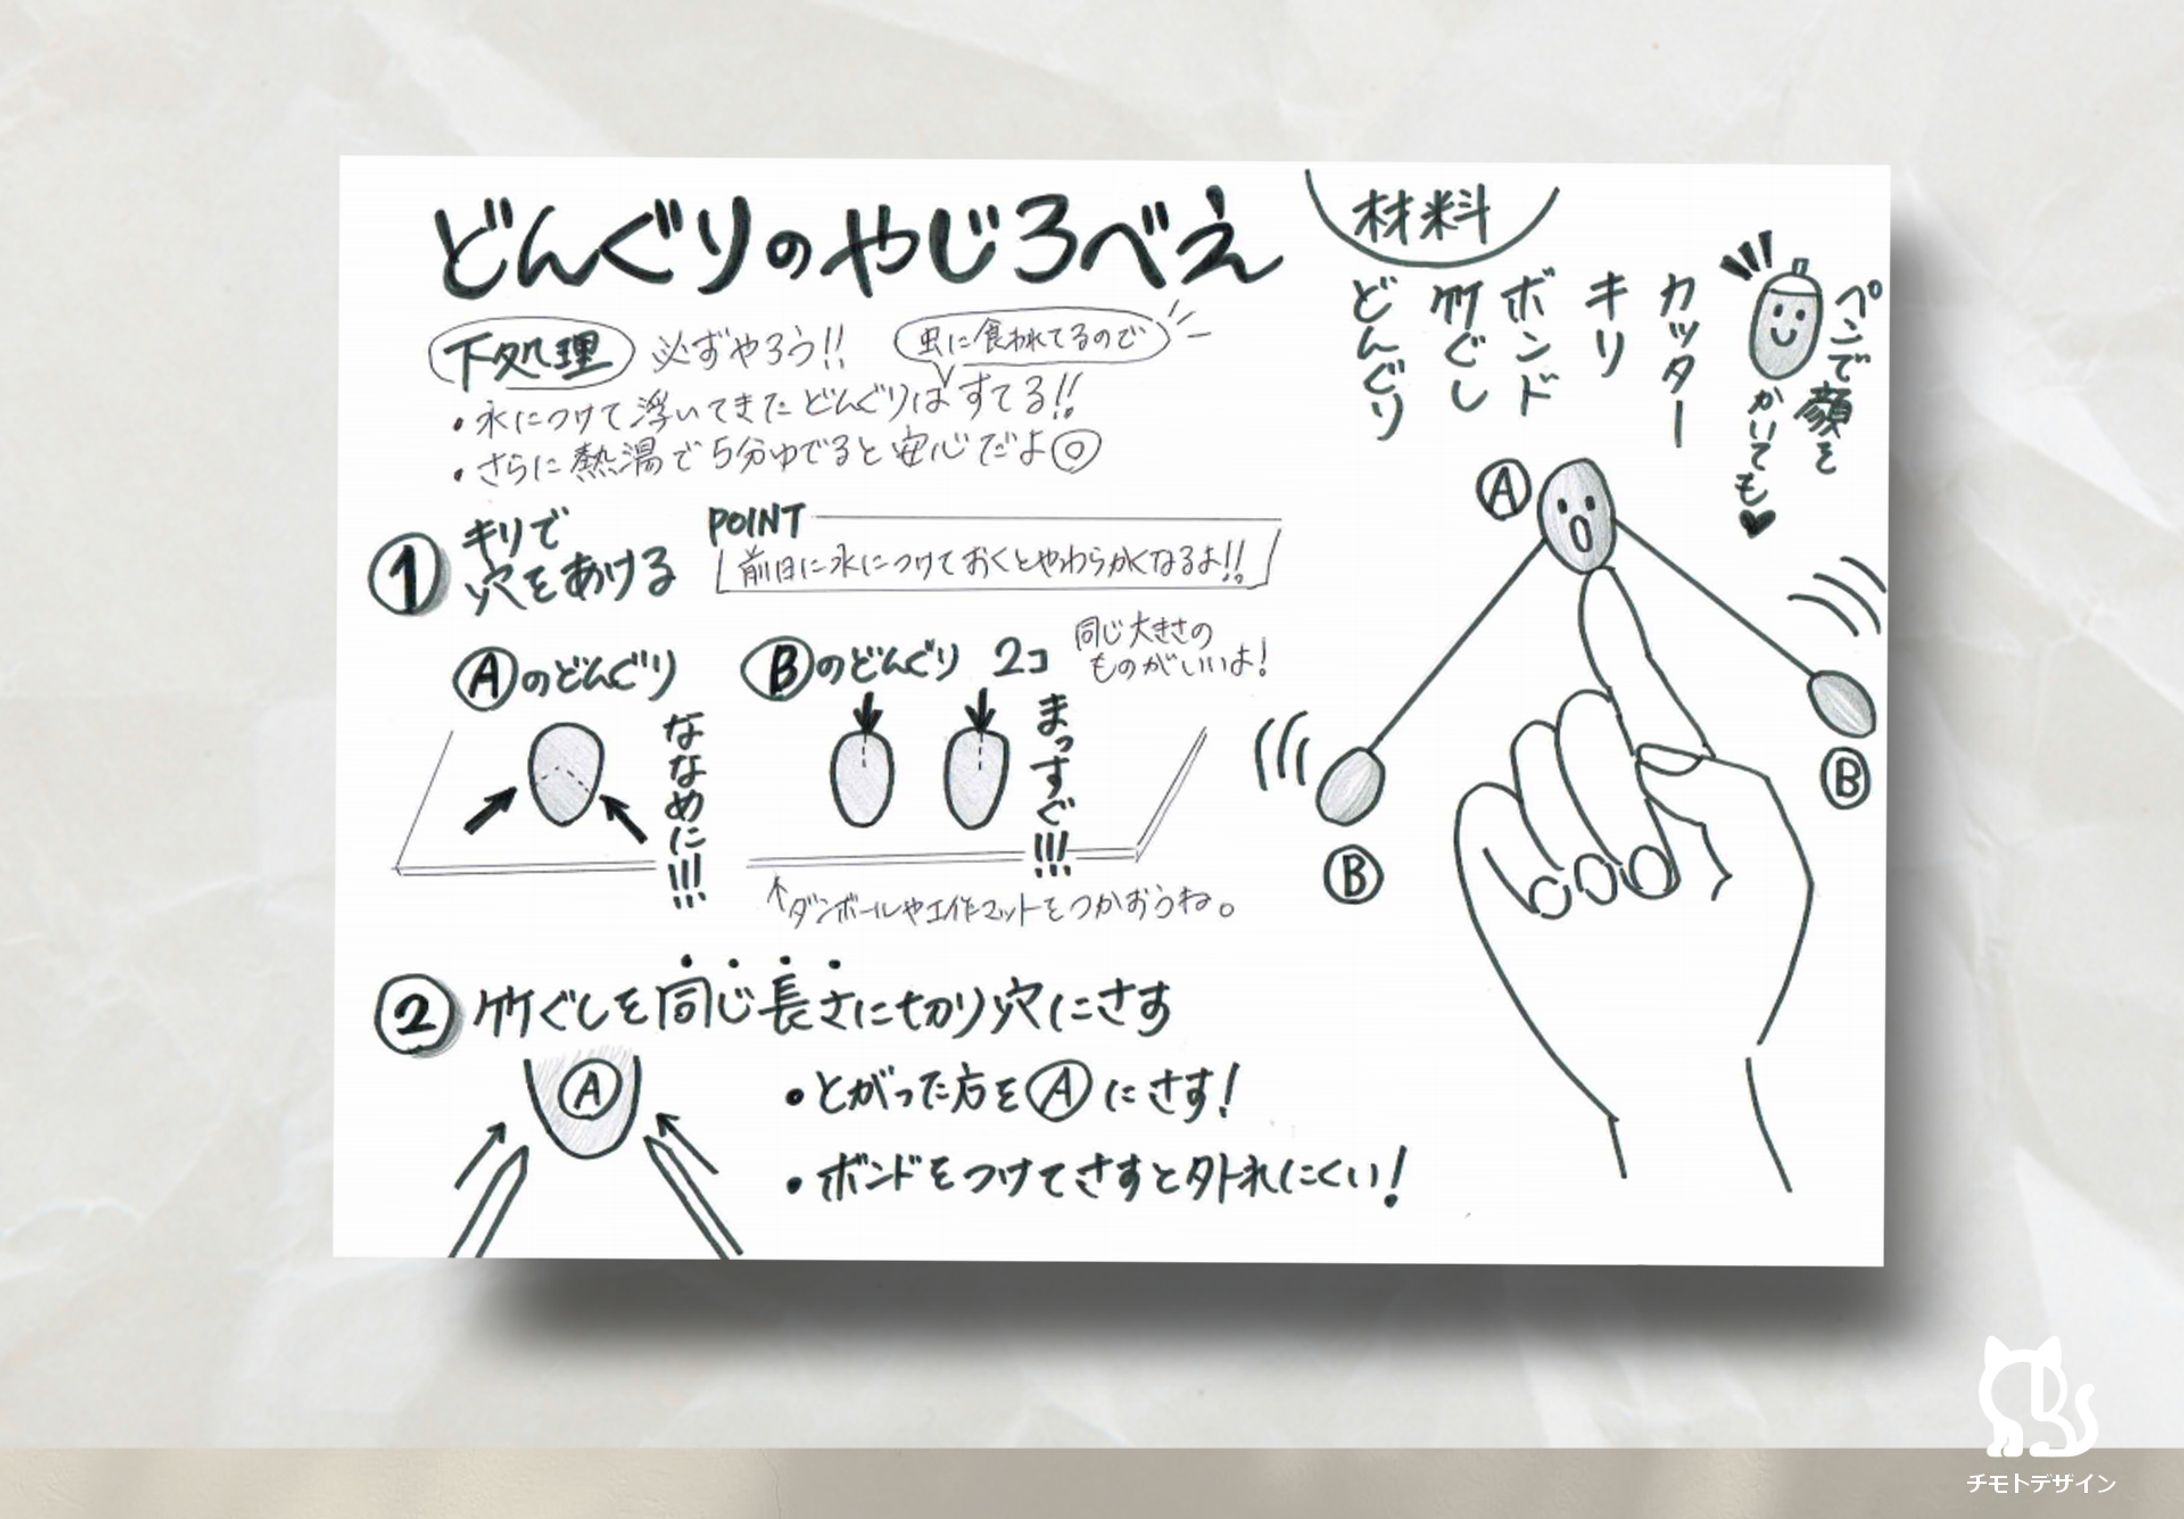 どんぐりのやじろべえ
下処理 必ずやろう!! 虫に食われてるので
・水につけて浮いてきたどんぐりはすてる!!
・さらに熱湯で5分ゆでると安心だよ◎
① キリで
穴をあける
POINT
前日に水につけておくとやわらかくなるよ!!
Ⓐのどんぐり
ななめに!!!
Ⓑのどんぐり 2コ
同じ大きさの
ものがいいよ!
まっすぐ!!!
↑ダンボールや工作マットをつかおうね。
② 竹ぐしを同じ長さに切り穴にさす
Ⓐ
・とがった方をⒶにさす!
・ボンドをつけてさすと外れにくい!
材料
どんぐり
竹ぐし
ボンド
キリ
カッター
ペンで顔を
かいても♥
Ⓐ
Ⓑ
Ⓑ
チモトデザイン